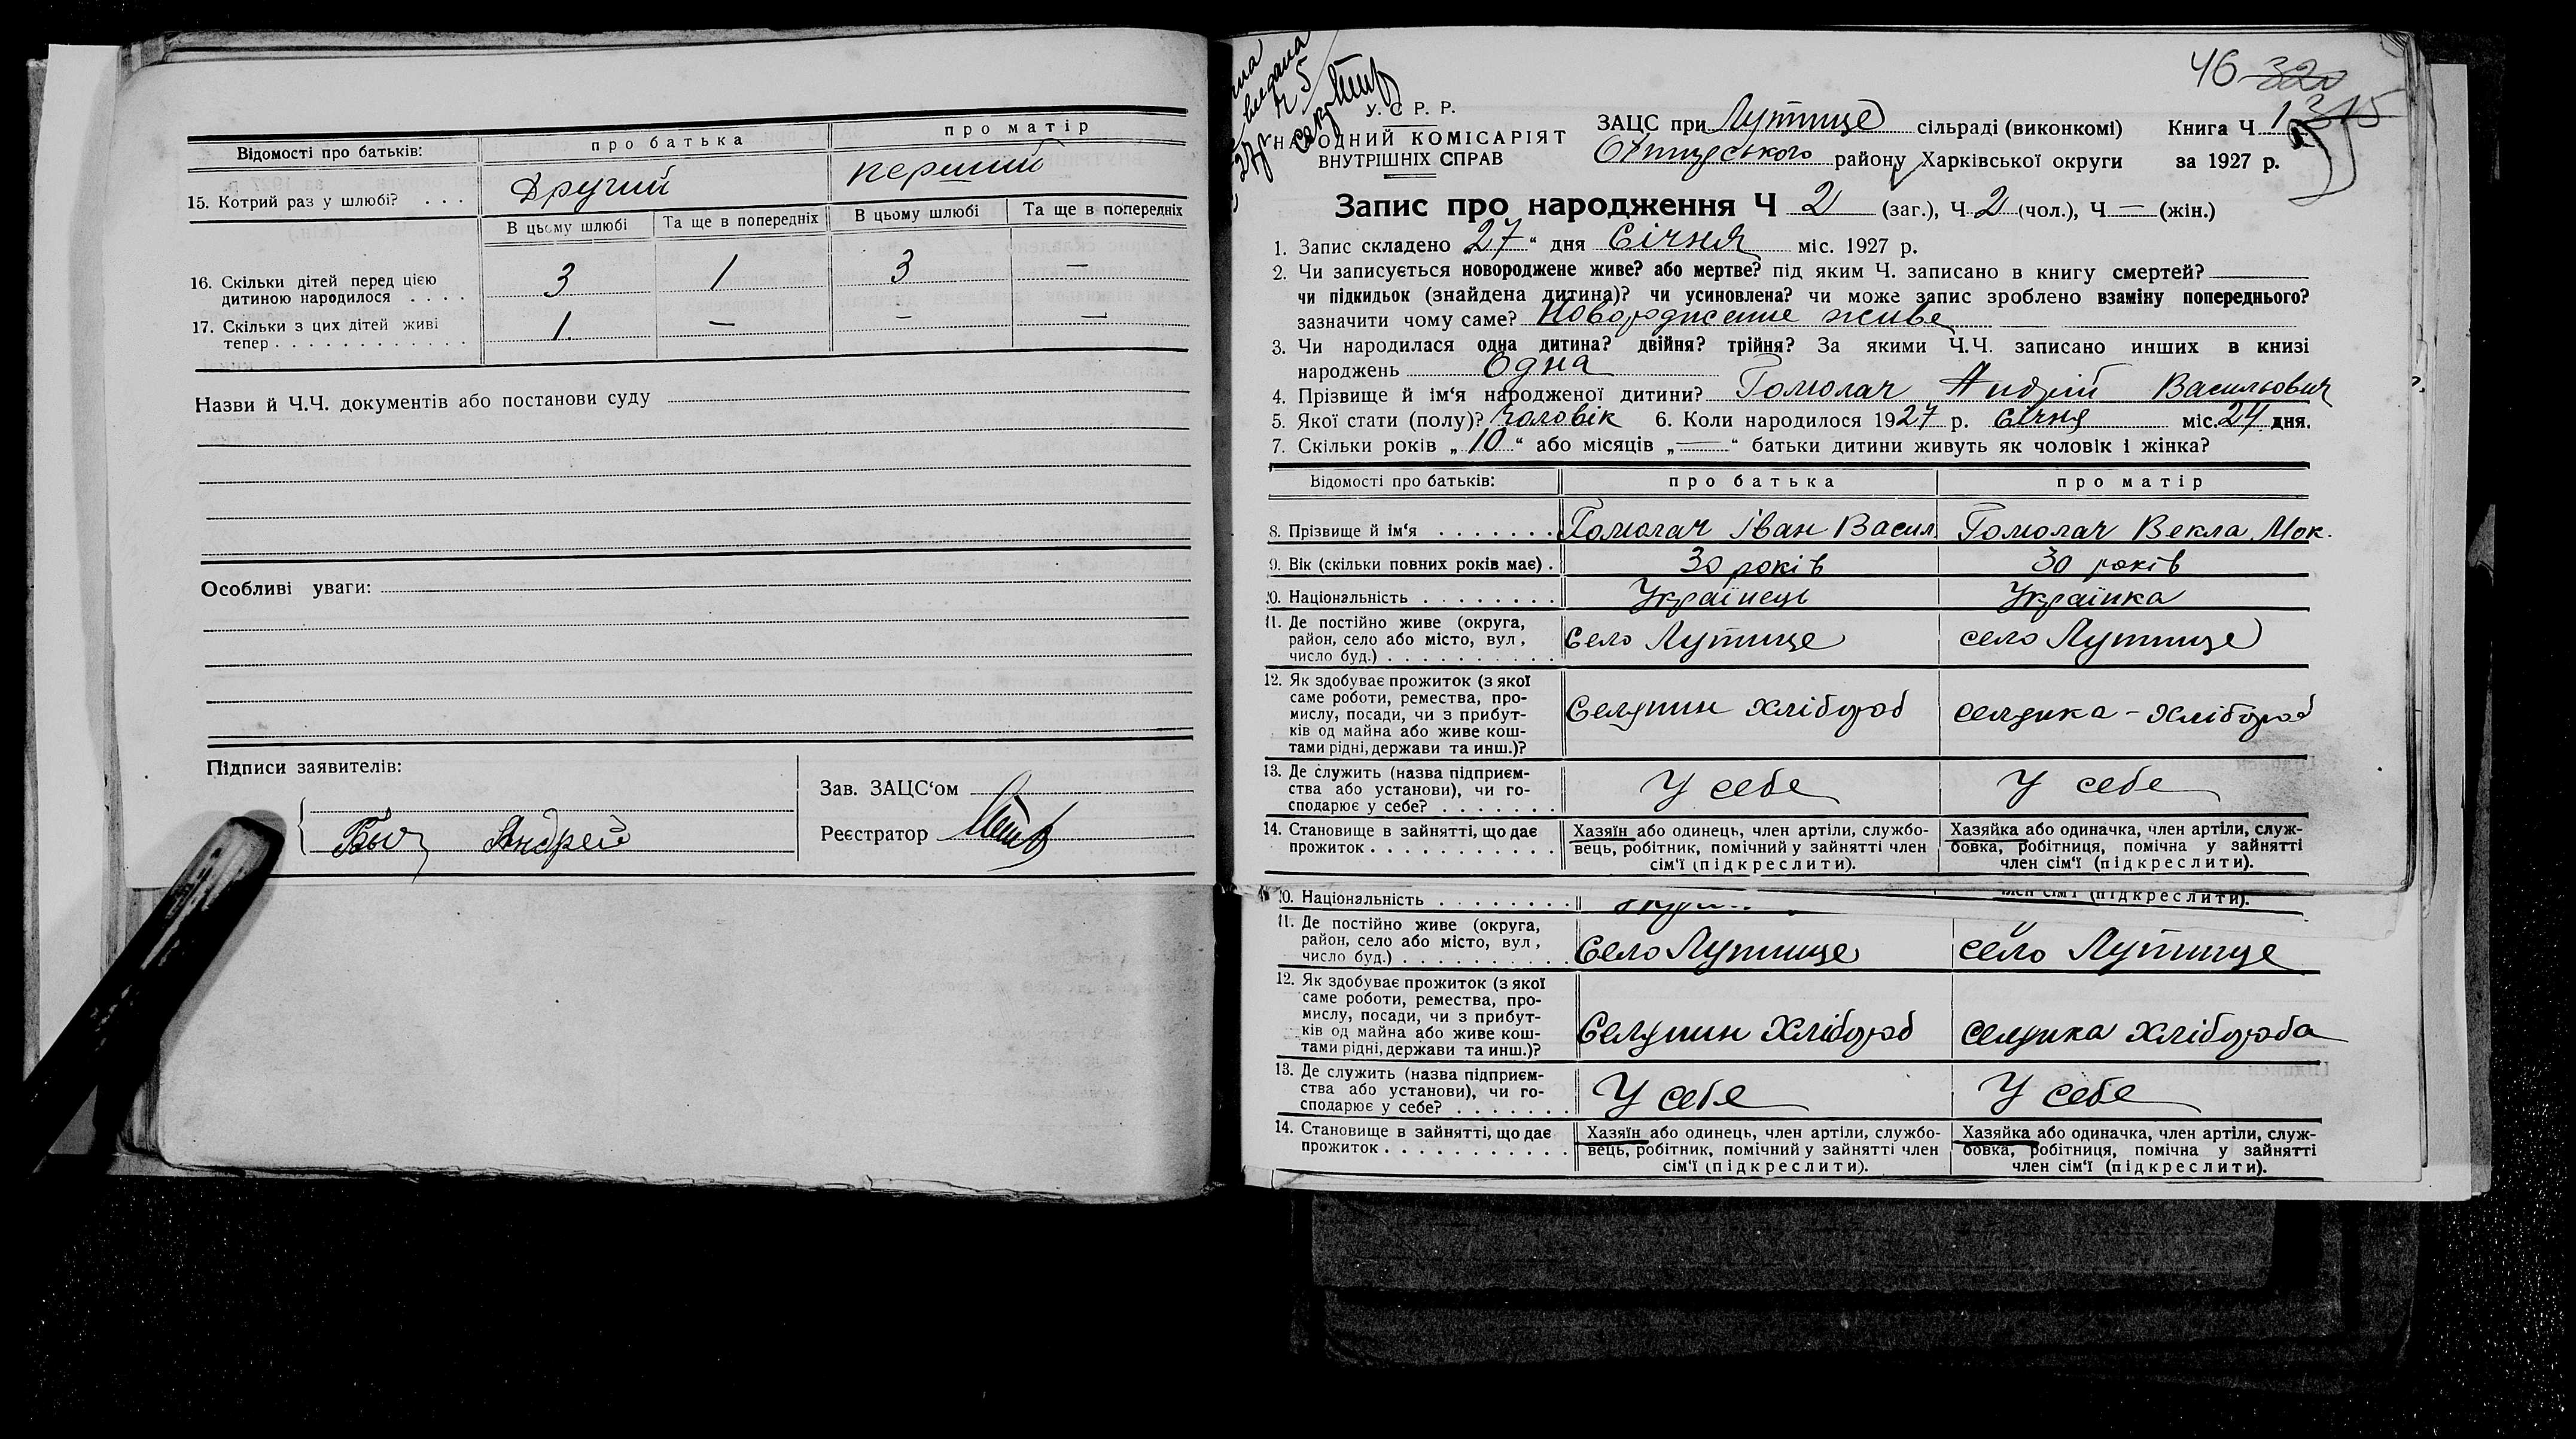 Відомості про батьків:
про батька
про матір
15. Котрий раз у шлюбі? . . .
Другий
перший
В цьому шлюбі
Та ще в попередніх
В цьому шлюбі
Та ще в попередніх
16. Скільки дітей перед цією
дитиною народилося . . . .
3
1
3
—
17. Скільки з цих дітей живі
тепер . . . . . . . . . . . .
1.
—
—
—
Назви й Ч.Ч. документів або постанови суду
Особливі уваги:
Підписи заявителів:
Андрей
Зав. ЗАЦС‘ом
Реєстратор
46 320
315
У. С. Р. Р.
НАРОДНИЙ КОМІСАРІЯТ
ВНУТРІШНІХ СПРАВ
ЗАЦС при Лутище сільраді (виконкомі) Книга Ч 1
району Харківської округи за 1927 р.
Запис про народження Ч 2 (заг.), Ч 2 (чол.), Ч — (жін.)
1. Запис складено „27“ дня Січня міс. 1927 р.
2. Чи записується новороджене живе? або мертве? під яким Ч. записано в книгу смертей?
чи підкидьок (знайдена дитина)? чи усиновлена? чи може запис зроблено взаміну попереднього?
зазначити чому саме? Новорожденне живе
3. Чи народилася одна дитина? двійня? трійня? За якими Ч.Ч. записано инших в книзі
народжень Одна
4. Прізвище й ім‘я народженої дитини? Гомолач Андрій Васильович
5. Якої стати (полу)? Чоловік 6. Коли народилося 1927 р. Січня міс. 24 дня.
7. Скільки років „10“ або місяців „—“ батьки дитини живуть як чоловік і жінка?
Відомості про батьків:
про батька
про матір
8. Прізвище й ім‘я . . . . . . .
Гомолач Іван Васил.
Гомолач Векла Мок.
9. Вік (скільки повних років має) .
30 років
30 років
10. Національність . . . . . . . .
Українець
Українка
11. Де постійно живе (округа,
район, село або місто, вул,
число буд.) . . . . . . . . . .
Село Лутище
село Лутище
12. Як здобуває прожиток (з якої
саме роботи, ремества, про-
мислу, посади, чи з прибут-
ків од майна або живе кош-
тами рідні, держави та инш.)?
Селянин хлібороб
селянка - хлібороб
13. Де служить (назва підприєм-
ства або установи), чи го-
сподарює у себе? . . . . . . .
У себе
У себе
14. Становище в зайнятті, що дає
прожиток . . . . . . . . . . .
Хазяїн або одинець, член артіли, службо-
вець, робітник, помічний у зайнятті член
сім‘ї (підкреслити).
Хазяйка або одиначка, член артіли, служ-
бовка, робітниця, помічна у зайнятті
член сім‘ї (підкреслити).
10. Національність . . . . . . . .
член сім‘ї (підкреслити).
11. Де постійно живе (округа,
район, село або місто, вул,
число буд.) . . . . . . . . . .
Село Лутище
село Лутище
12. Як здобуває прожиток (з якої
саме роботи, ремества, про-
мислу, посади, чи з прибут-
ків од майна або живе кош-
тами рідні, держави та инш.)?
Селянин хлібороб
селянка хлібороба
13. Де служить (назва підприєм-
ства або установи), чи го-
сподарює у себе? . . . . . . .
У себе
У себе
14. Становище в зайнятті, що дає
прожиток . . . . . . . . . . .
Хазяїн або одинець, член артіли, службо-
вець, робітник, помічний у зайнятті член
сім‘ї (підкреслити).
Хазяйка або одиначка, член артіли, служ-
бовка, робітниця, помічна у зайнятті
член сім‘ї (підкреслити).